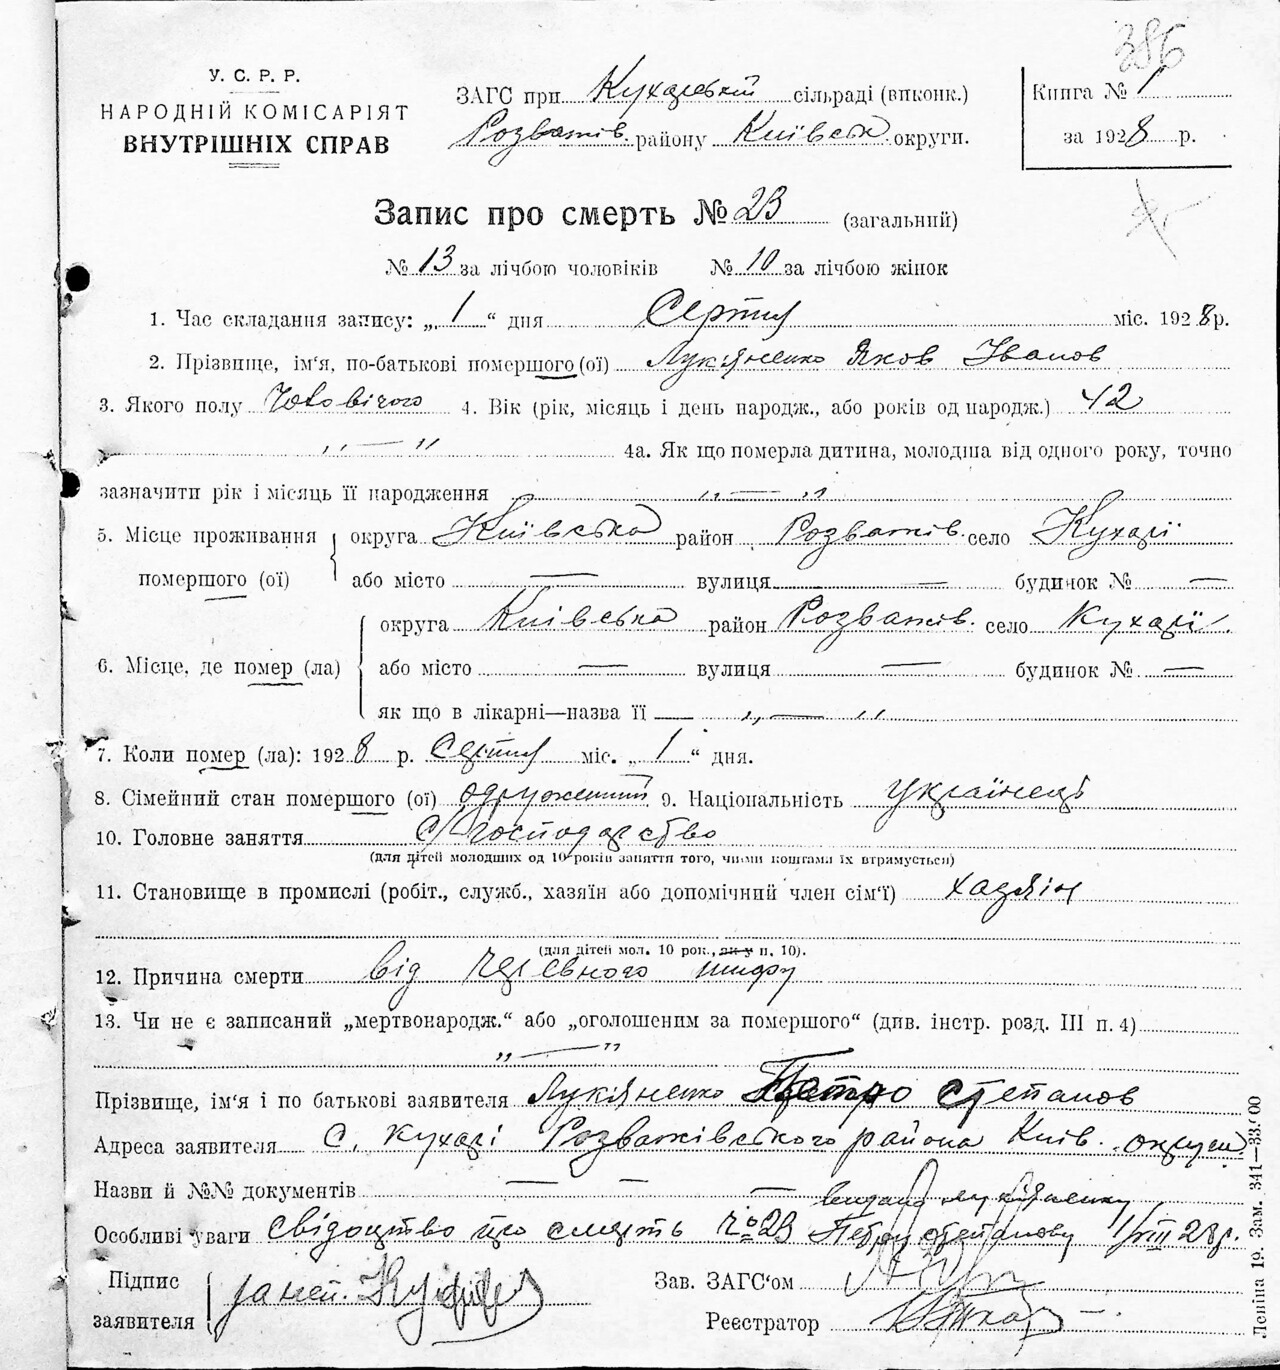 386
У. С. Р. Р.
НАРОДНІЙ КОМІСАРІЯТ
ВНУТРІШНІХ СПРАВ
ЗАГС при Кухарській сільраді (виконк.)
Розважів. району Київськ. округи.
Книга № 1
за 1928 р.
Запис про смерть № 23 (загальний)
№ 13 за лічбою чоловіків № 10 за лічбою жінок
1. Час складання запису: „ 1 “ дня Серпня міс. 1928 р.
2. Прізвище, ім'я, по-батькові помершого (ої) Лук'яненко Яков Іванов
3. Якого полу Чоловічого 4. Вік (рік, місяць і день народж., або років од народж.) 42
„ — “ 4а. Як що померла дитина, молодша від одного року, точно
зазначити рік і місяць її народження „ — “
5. Місце проживання помершого (ої) округа Київська район Розважів. село Кухарі
або місто — вулиця — будинок № —
6. Місце, де помер (ла) округа Київська район Розважів. село Кухарі
або місто — вулиця — будинок № —
як що в лікарні—назва її — „ — “
7. Коли помер (ла): 1928 р. Серпня міс. „ 1 “ дня.
8. Сімейний стан помершого (ої) одружений 9. Національність Українець
10. Головне заняття с/господарство
(для дітей молодших од 10 років заняття того, чиїми коштами їх втримується)
11. Становище в промислі (робіт., служб., хазяїн або допомічний член сім'ї) хазяїн
(для дітей мол. 10 рок., як у п. 10).
12. Причина смерти від черевного тифу
13. Чи не є записаний „мертвонародж.“ або „оголошеним за помершого“ (див. інстр. розд. III п. 4)
„ — “
Прізвище, ім'я і по батькові заявителя Лукіяненко Петро Степанов
Адреса заявителя С. Кухарі Розважівського района Київ. округи
Назви й №№ документів — — —
видано Лукіяненку
Особливі уваги свідоцтво про смерть № 23 Петру Степанову 1/VIII 28 р.
Підпис заявителя
Зав. ЗАГС'ом
Реєстратор
Леніна 19. Зам. 341—33.